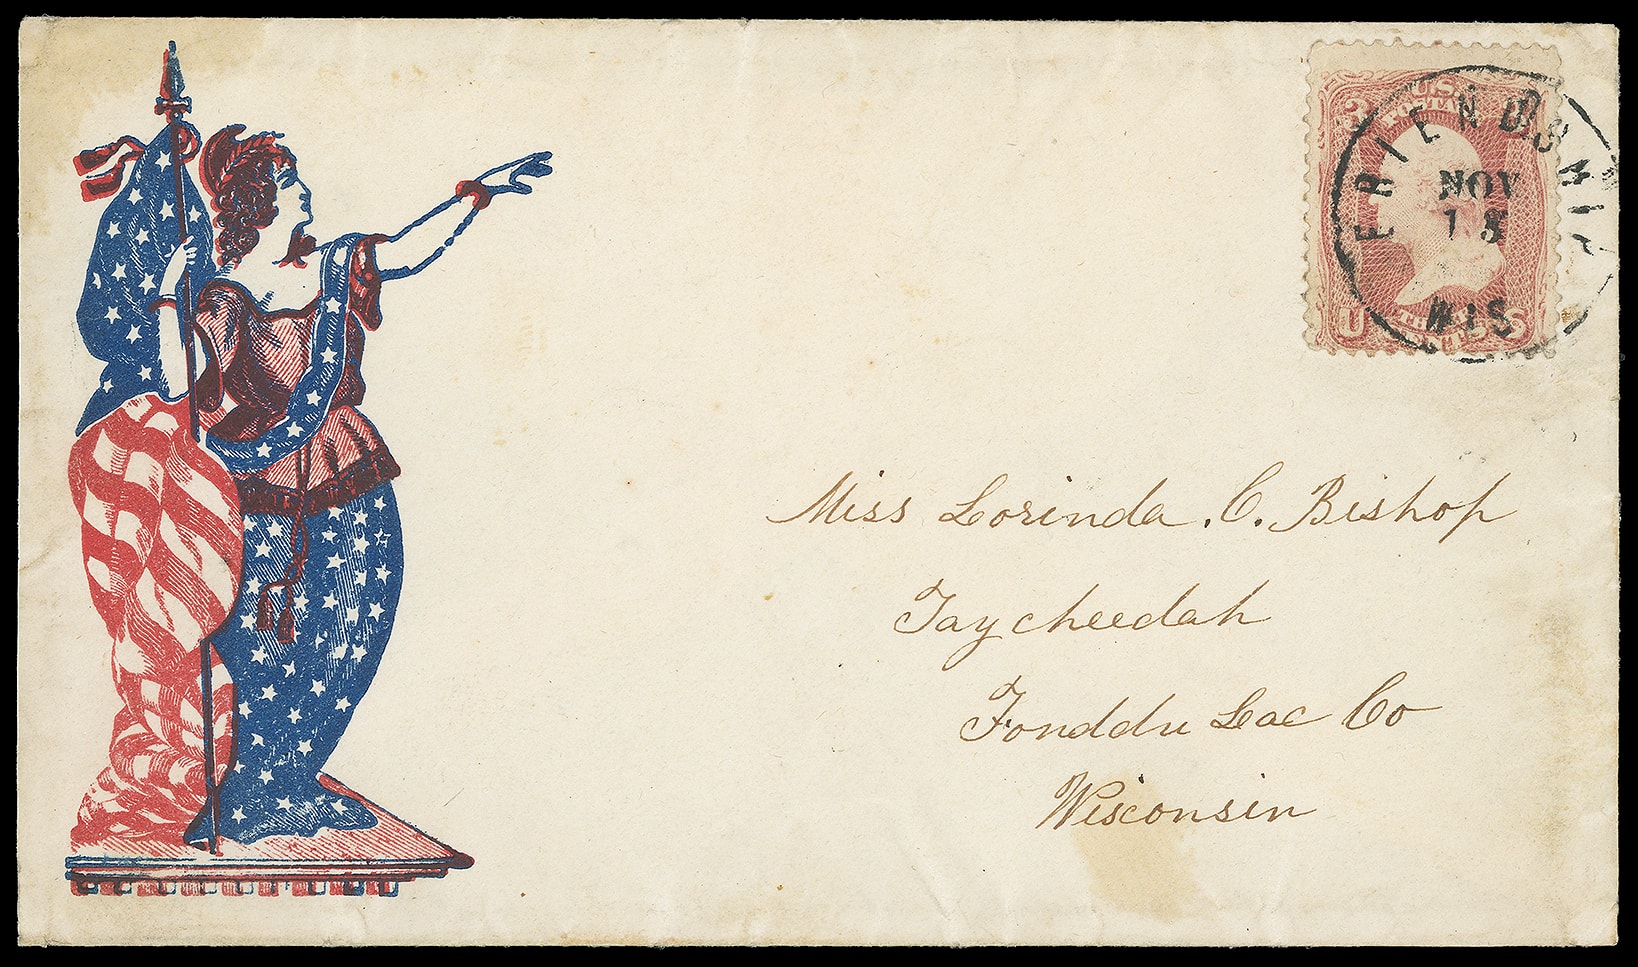 U.S.
POSTAGE
3
FRIENDSHIP
NOV
13
WIS
U S
Miss Lorinda . C. Bishop
Taycheedah
Fonddu Lac Co
Wisconsin